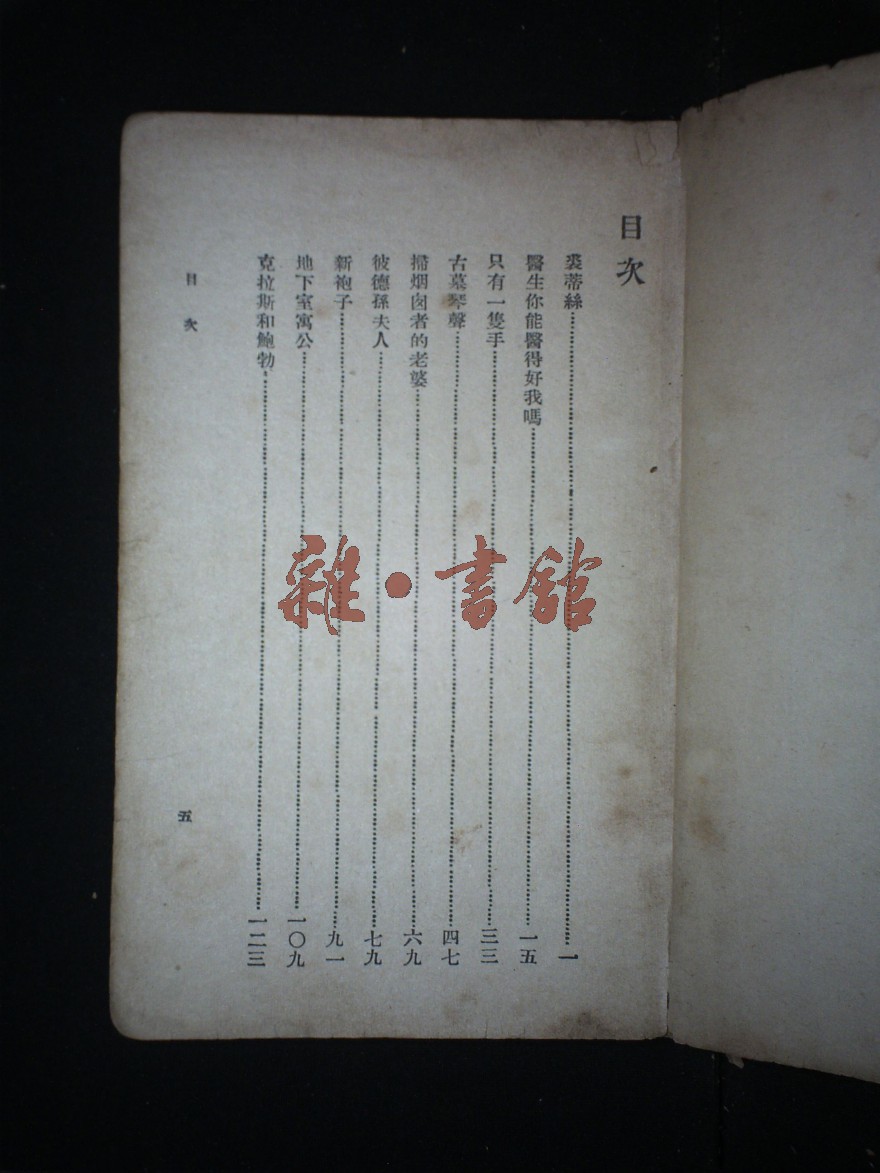 目次
裘蒂絲……一
醫生你能醫得好我嗎……一五
只有一隻手……三三
古墓琴聲……四七
掃烟囪者的老婆……六九
彼德孫夫人……七九
新袍子……九一
地下室寓公……一〇九
克拉斯和鮑勃……一二三
目次
五
雜·書館